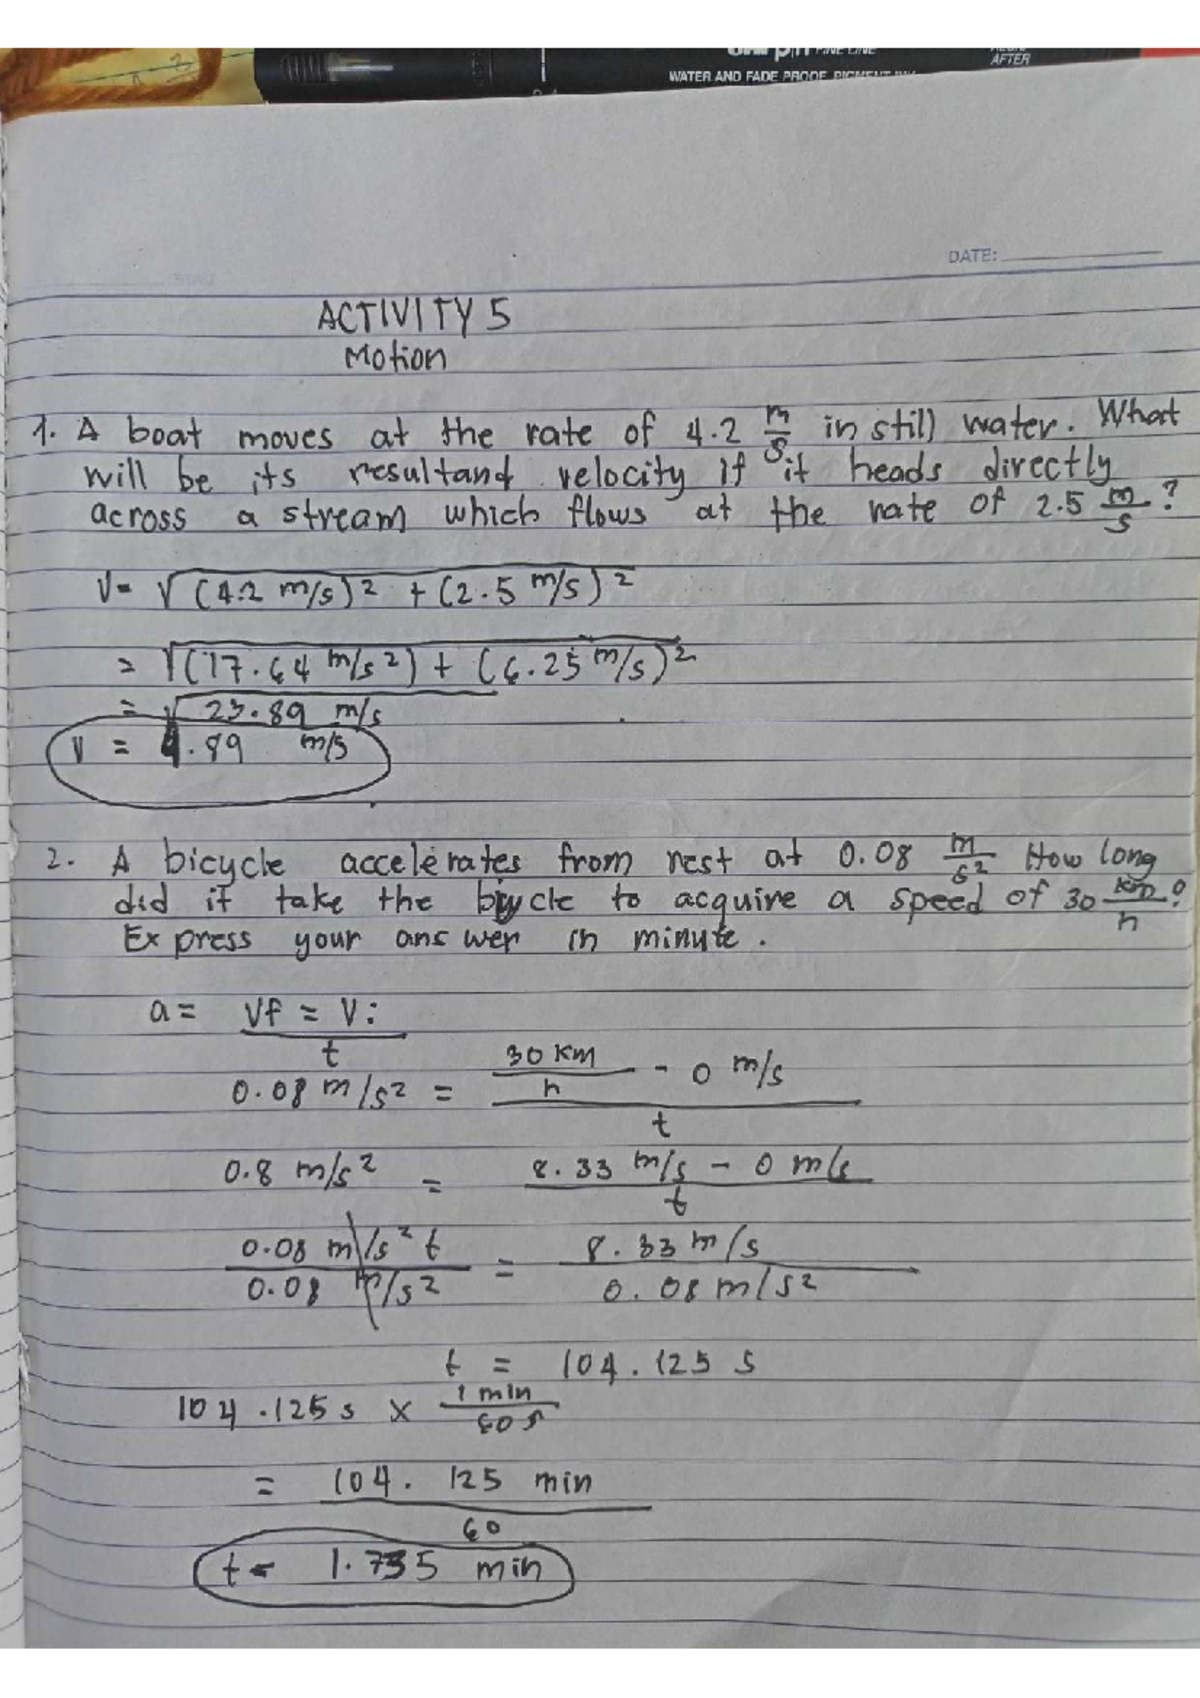 FINE LINE
WATER AND FADE PROOF PIGMENT INK
AFTER
DATE:
ACTIVITY 5
Motion
1. A boat moves at the rate of 4.2 m/s in still water. What
will be its resultand velocity if it heads directly
across a stream which flows at the rate of 2.5 m/s ?
V= √(4.2 m/s)2 + (2.5 m/s)2
= √(17.64 m/s2) + (6.25 m/s)2
= √23.89 m/s
V = 4.89 m/s
2. A bicycle accelerates from rest at 0.08 m/s2 How long
did it take the bicycle to acquire a speed of 30 km/h?
Express your answer in minute.
a= Vf = Vi
t
0.08 m/s2 = 30 km/h - 0 m/s
t
0.8 m/s2 = 8.33 m/s - 0 m/s
t
0.08 m/s2 t = 8.33 m/s
0.08 m/s2 0.08 m/s2
t = 104.125 s
104.125 s x 1 min
60 s
= 104.125 min
60
t = 1.735 min